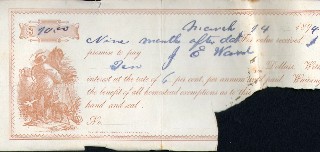 $10.00 March 14 1894
Nine months after date for value received I
promise to pay J E Ward
Ten Dollars, With
interest at the rate of 6 per cent. per annum until paid. Waiving
the benefit of all homestead exemptions as to this
hand and seal.
No.